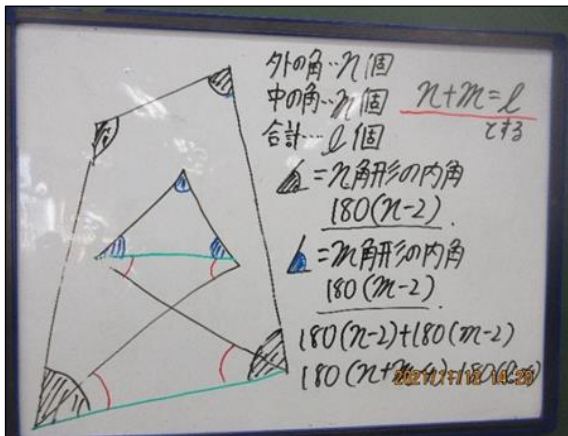 外の角…n個
中の角…m個
合計…l個
n+m=l
とする
=n角形の内角
180(n-2).
=m角形の内角
180(m-2)
180(n-2)+180(m-2)
180(n+m-4)
2021/11/13 14:28